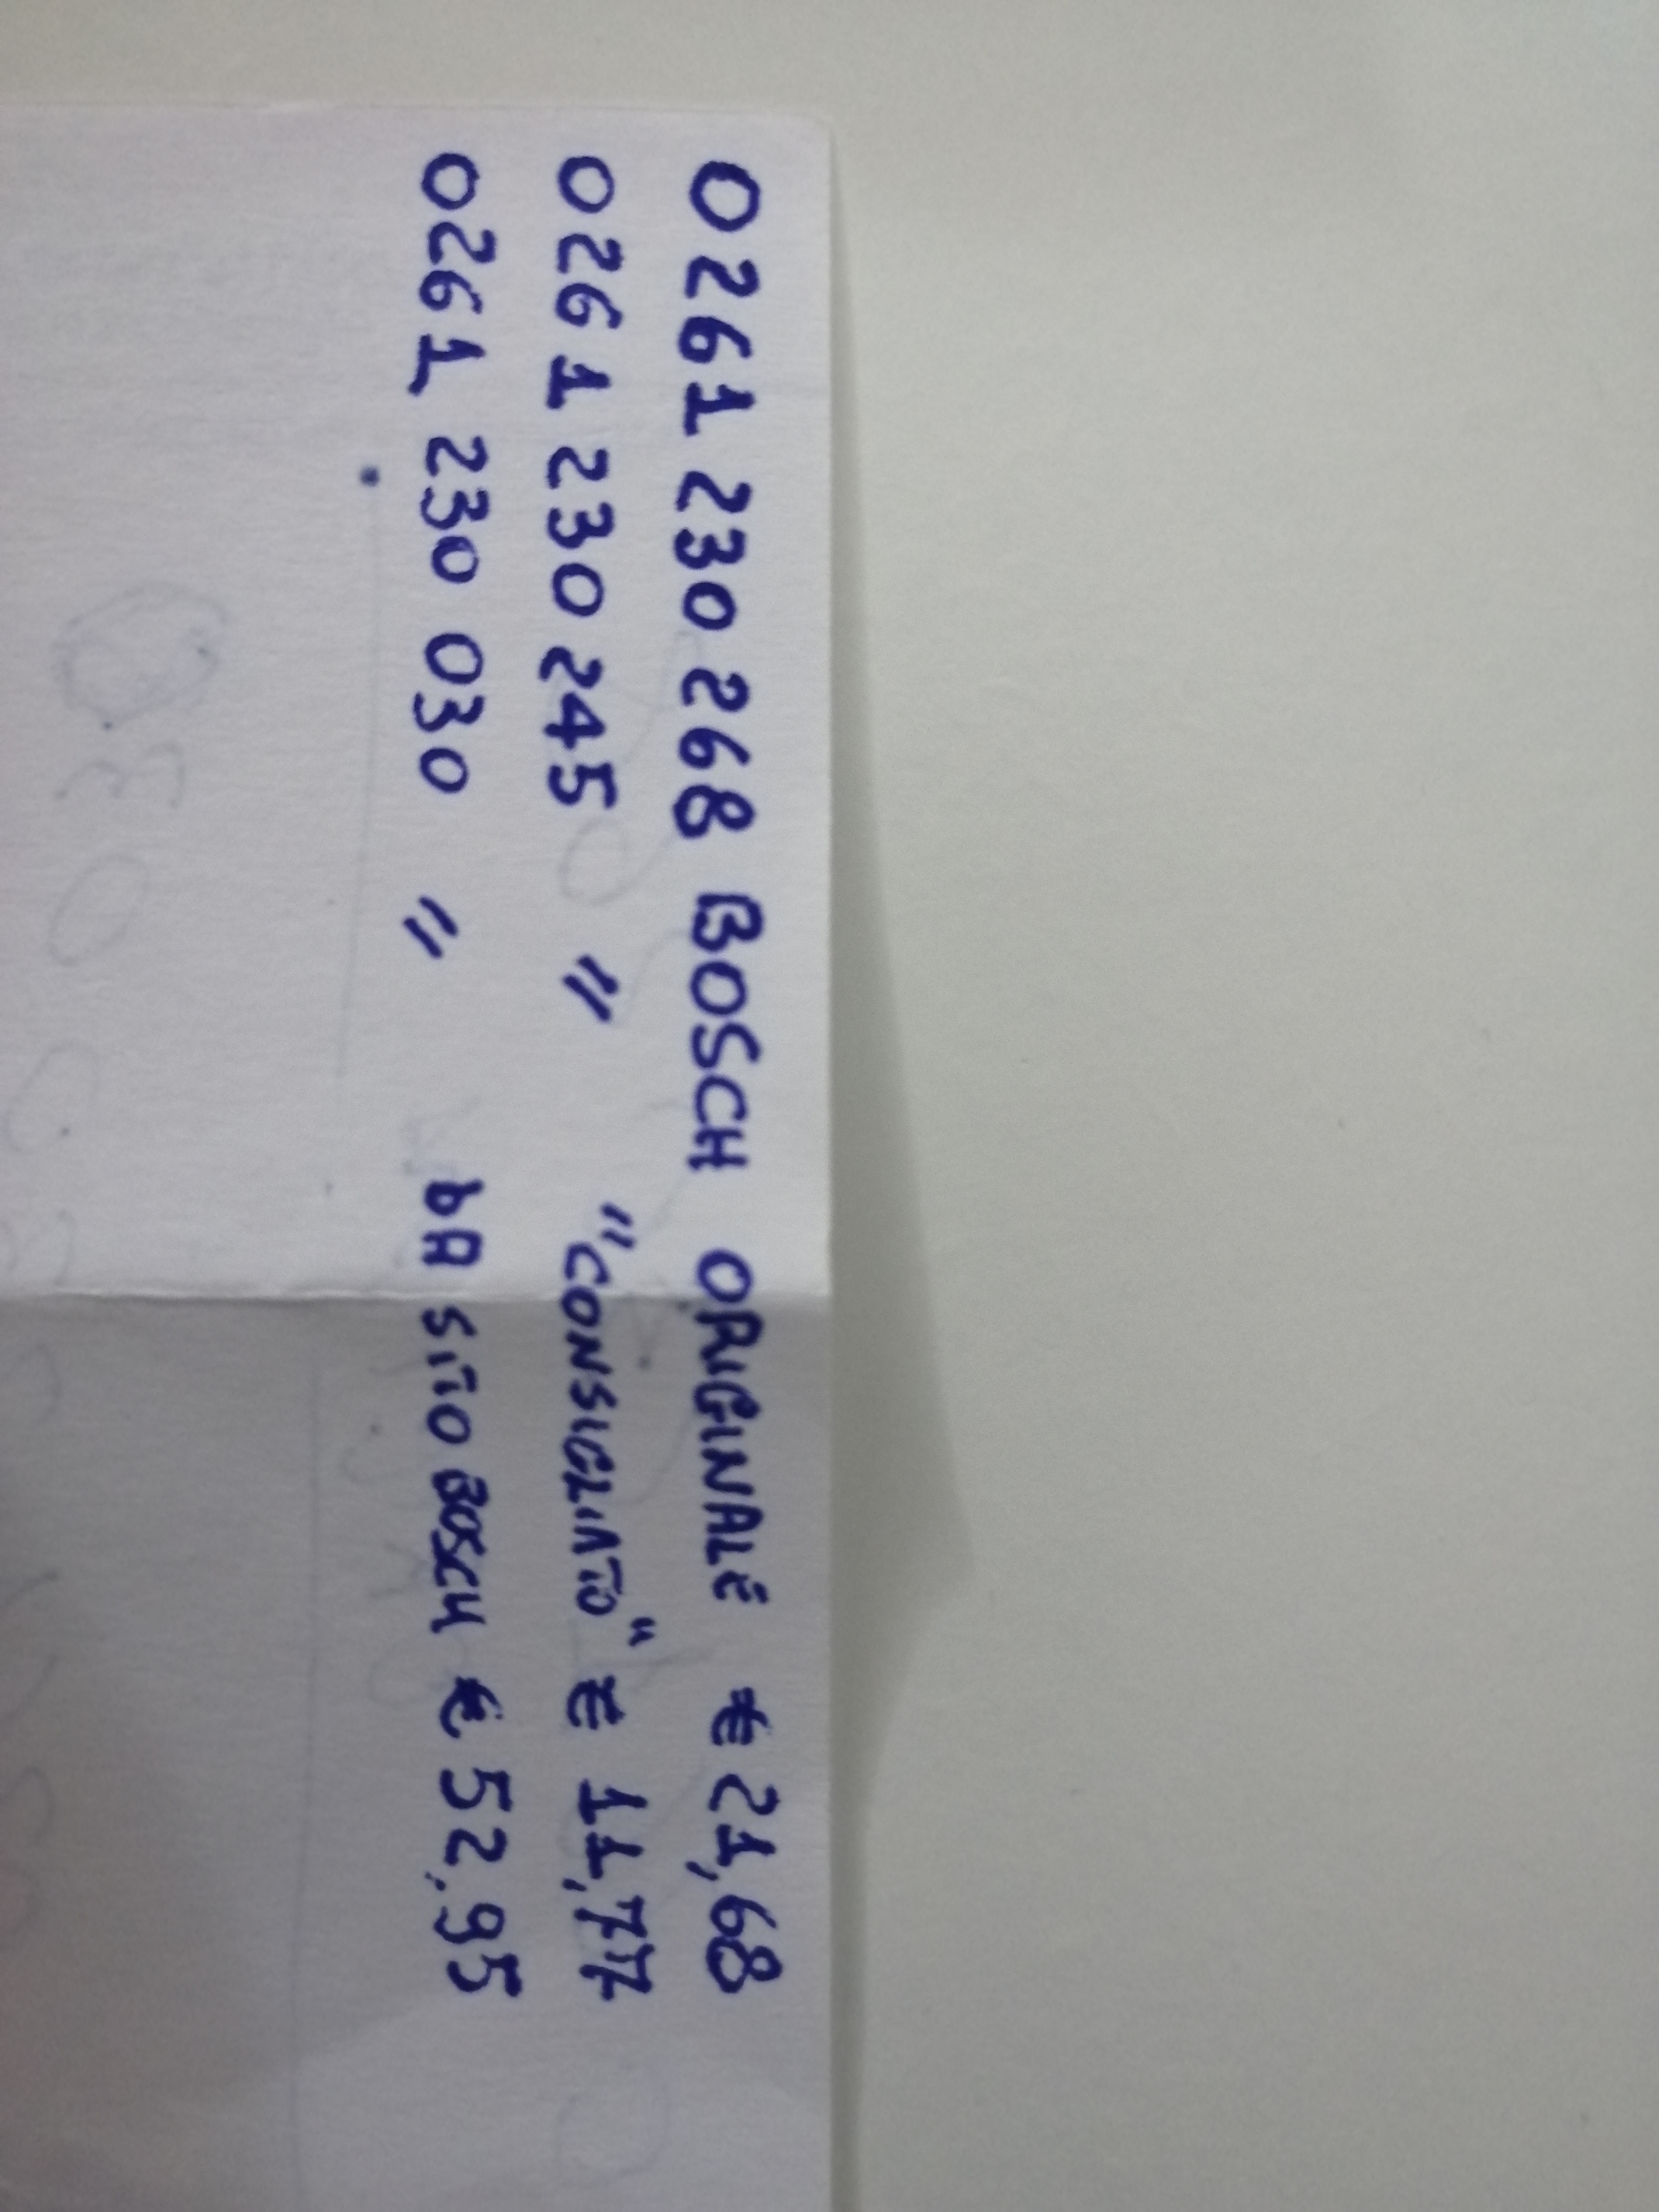 0 261 230 268 BOSCH ORIGINALE € 21,68
0 261 230 245 " "CONSIGLIATO" € 11,77
0261 230 030 " DA SITO BOSCH € 52,95